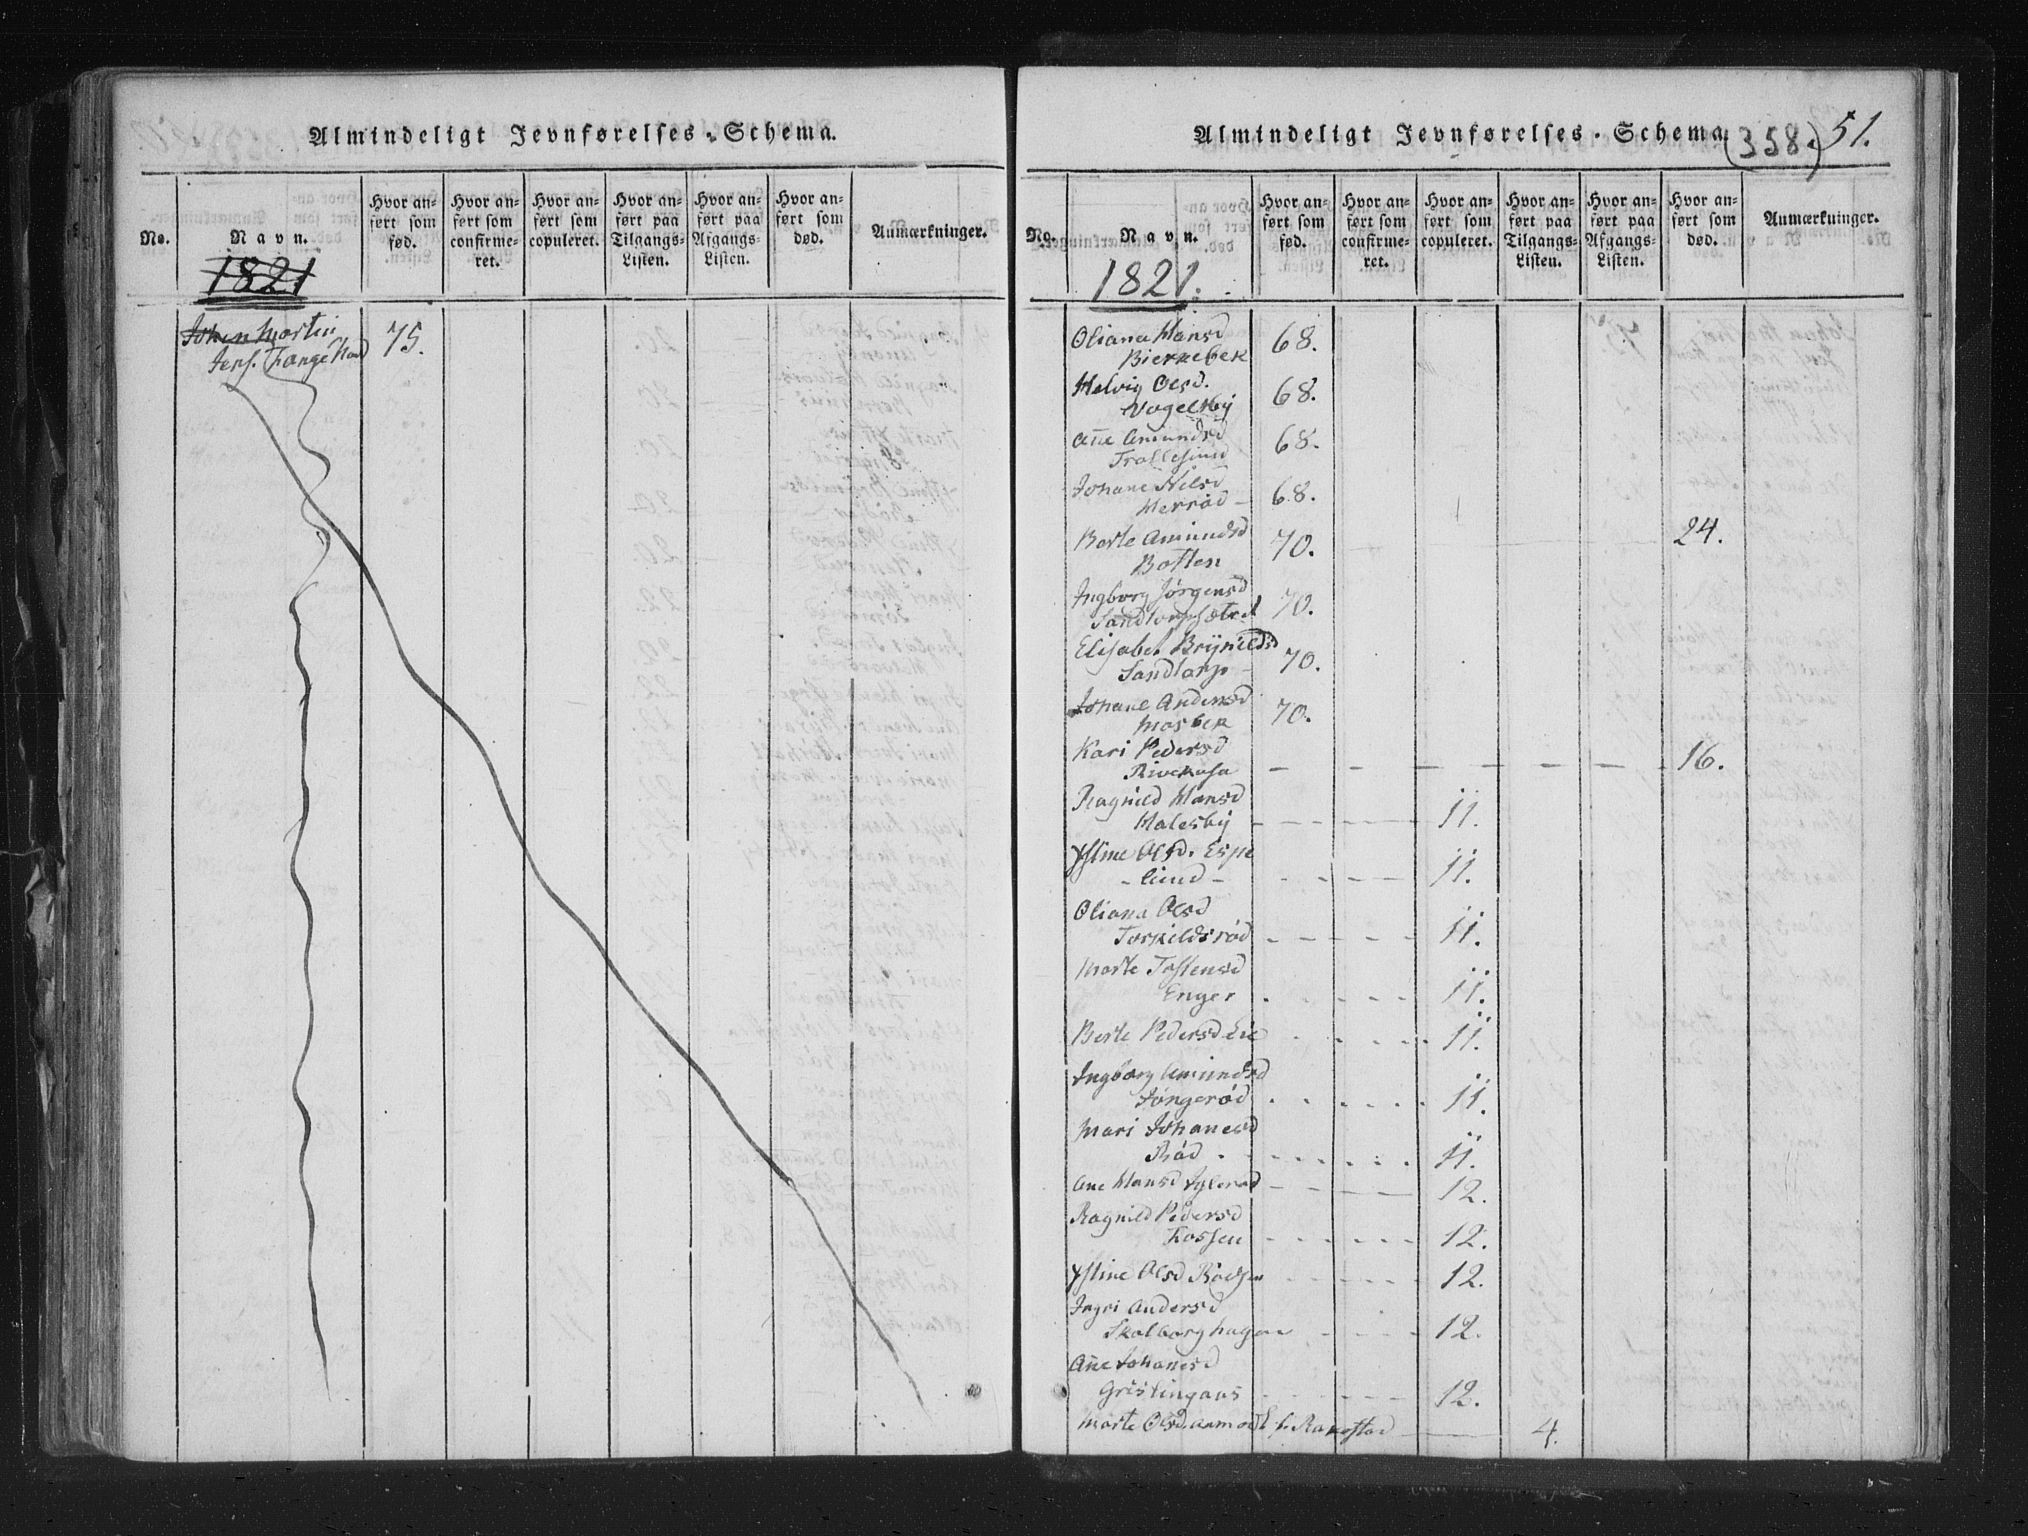 Almindeligt Jevnførelses-Schema.
No.
Navn.
Hvor anført som fød.
Hvor anført som confirmeret.
Hvor anført som copuleret.
Hvor anført paa Tilgangs-Listen.
Hvor anført paa Afgangs-Listen.
Hvor anført som død.
Anmærkninger.
1821
Johan Martin
Jens. Tangehaud 75.
Almindeligt Jevnførelses-Schema. (358.) 51.
No.
Navn.
Hvor anført som fød.
Hvor anført som confirmeret.
Hvor anført som copuleret.
Hvor anført paa Tilgangs-Listen.
Hvor anført paa Afgangs-Listen.
Hvor anført som død.
Anmærkninger.
1821.
Oliana Hansd
Bierkebek 68.
Helvig Olsd.
Vogelkbÿ 68.
Añe Amundsd
Trollesund 68.
Johane Nilsd
Herrød - 68.
Berte Amundsd 24.
Botten 70.
Ingborg Jørgensd
Sandtorpsætret 70.
Elisabet Brÿnildsd
Sandtorp - 70.
Johane Andersd
Mosbek 70.
Kari Pedersd
16.
Ragnild Hansd
Halesbÿ 11.
Ystine Olsd. Espe
- lund - 11.
Oliana Olsd
Torkildsrød 11.
Marte Tostensd
Enger 11.
Berte Pedersd Lie 11.
Ingborg Amundsd
Tøngerød 11.
Mari Johanesd
Rød 11.
Ane Hansd Igлerød 12.
Ragnild Pedersd
Kossen 12.
Ystine Olsd Rødsen 12.
Ingri Andersd
Skolborghagen 12.
Añe Johanesd
Grislingaas 12.
Marte Olsd. anmodt f. Rakestad 4.